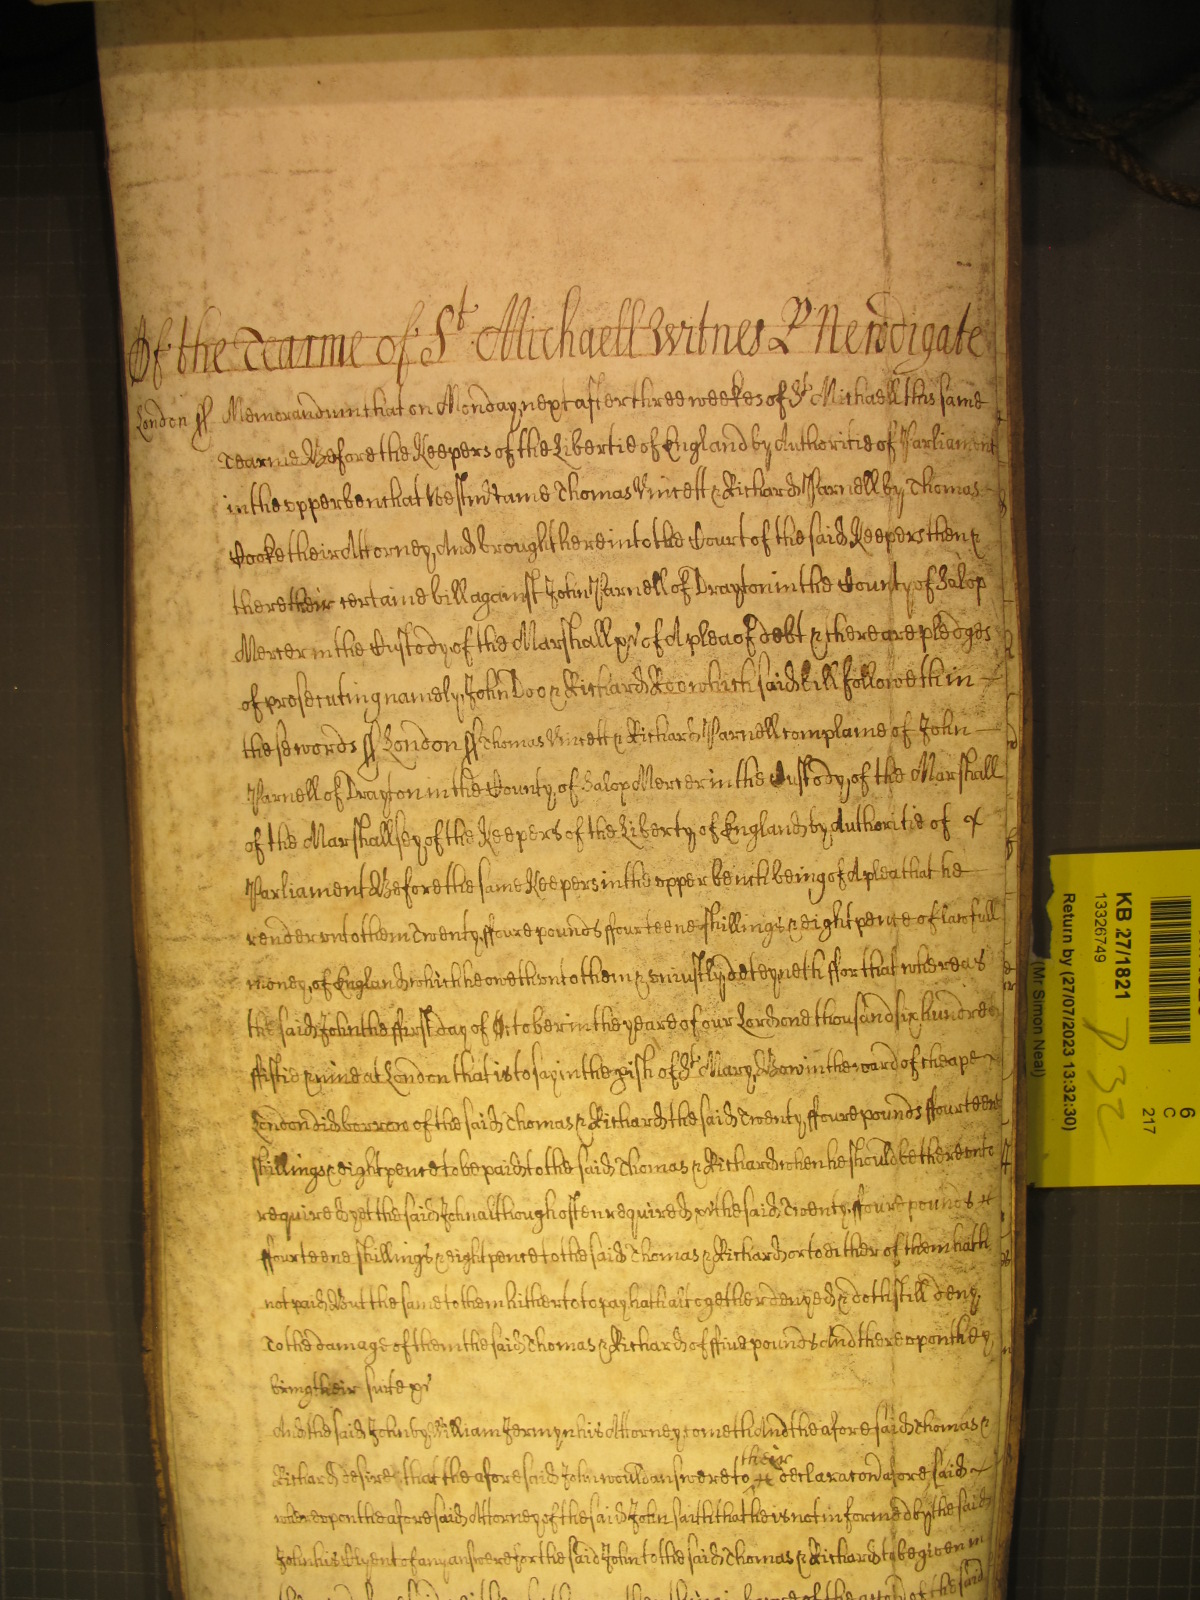 Of the Tearme of St Michaell Witnes P Newdigate
London ss Memorandum that on Monday next after three weekes of St Michaell this same
Tearme Before the Keepers of the Libertie of England by Authoritie of Parliament
in the upper bench at Westmr came Thomas Vincett & Richard Parnell by Thomas
Cooke their Attorney, And brought here into the Court of the said Keepers then &
there their certaine bill against John Parnell of Drayton in the County of Salop
Mercer in the Custody of the Marshall &c of A plea of debt & there are pledges
of prosecuting namely John Doo & Richard Roo which said bill followeth in
these words ss London ss Thomas Vincett & Richard Parnell complaine of John
Parnell of Drayton in the County of Salop Mercer in the Custody of the Marshall
of the Marshallsey of the Keepers of the Liberty of England by Authoritie of
Parliament Before the same Keepers in the upper bench being of A plea that he
render unto them Twenty ffoure pounds ffourteene shillings & eight pence of lawfull
money of England which he oweth unto them & uniustly deteyneth ffor that whereas
the said John the ffirst day of October in the yeare of our Lord one thousand six hundred
ffiftie & nine at London that is to say in the pish of St Mary Bow in the ward of Cheape
London did borrow of the said Thomas & Richard the said Twenty ffoure pounds ffourteene
shillings & eight pence to be paid to the said Thomas & Richard when he should be thereunto
required yet the said John although often required &c the said Twenty ffoure pounds
ffourteene shillings & eight pence to the said Thomas & Richard or to either of them hath
not paid But the same to them hitherto to pay hath altogether denyed & doth still deny
To the damage of them the said Thomas & Richard of ffive pounds And thereupon they
bring their suite &c
And the said John by William Jermyn his Attorney cometh And the aforesaid Thomas &
Richard desire that the aforesaid John would answere to their declaracon aforesaid
whereupon the aforesaid Attorney of the said John saith that he is not informed by the said
John his Clyent of any answere for the said John to the said Thomas & Richard to be given in
of the said
KB 27/1821
13326749
Return by (27/07/2023 13:32:30)
(Mr Simon Neal)
6
C
217